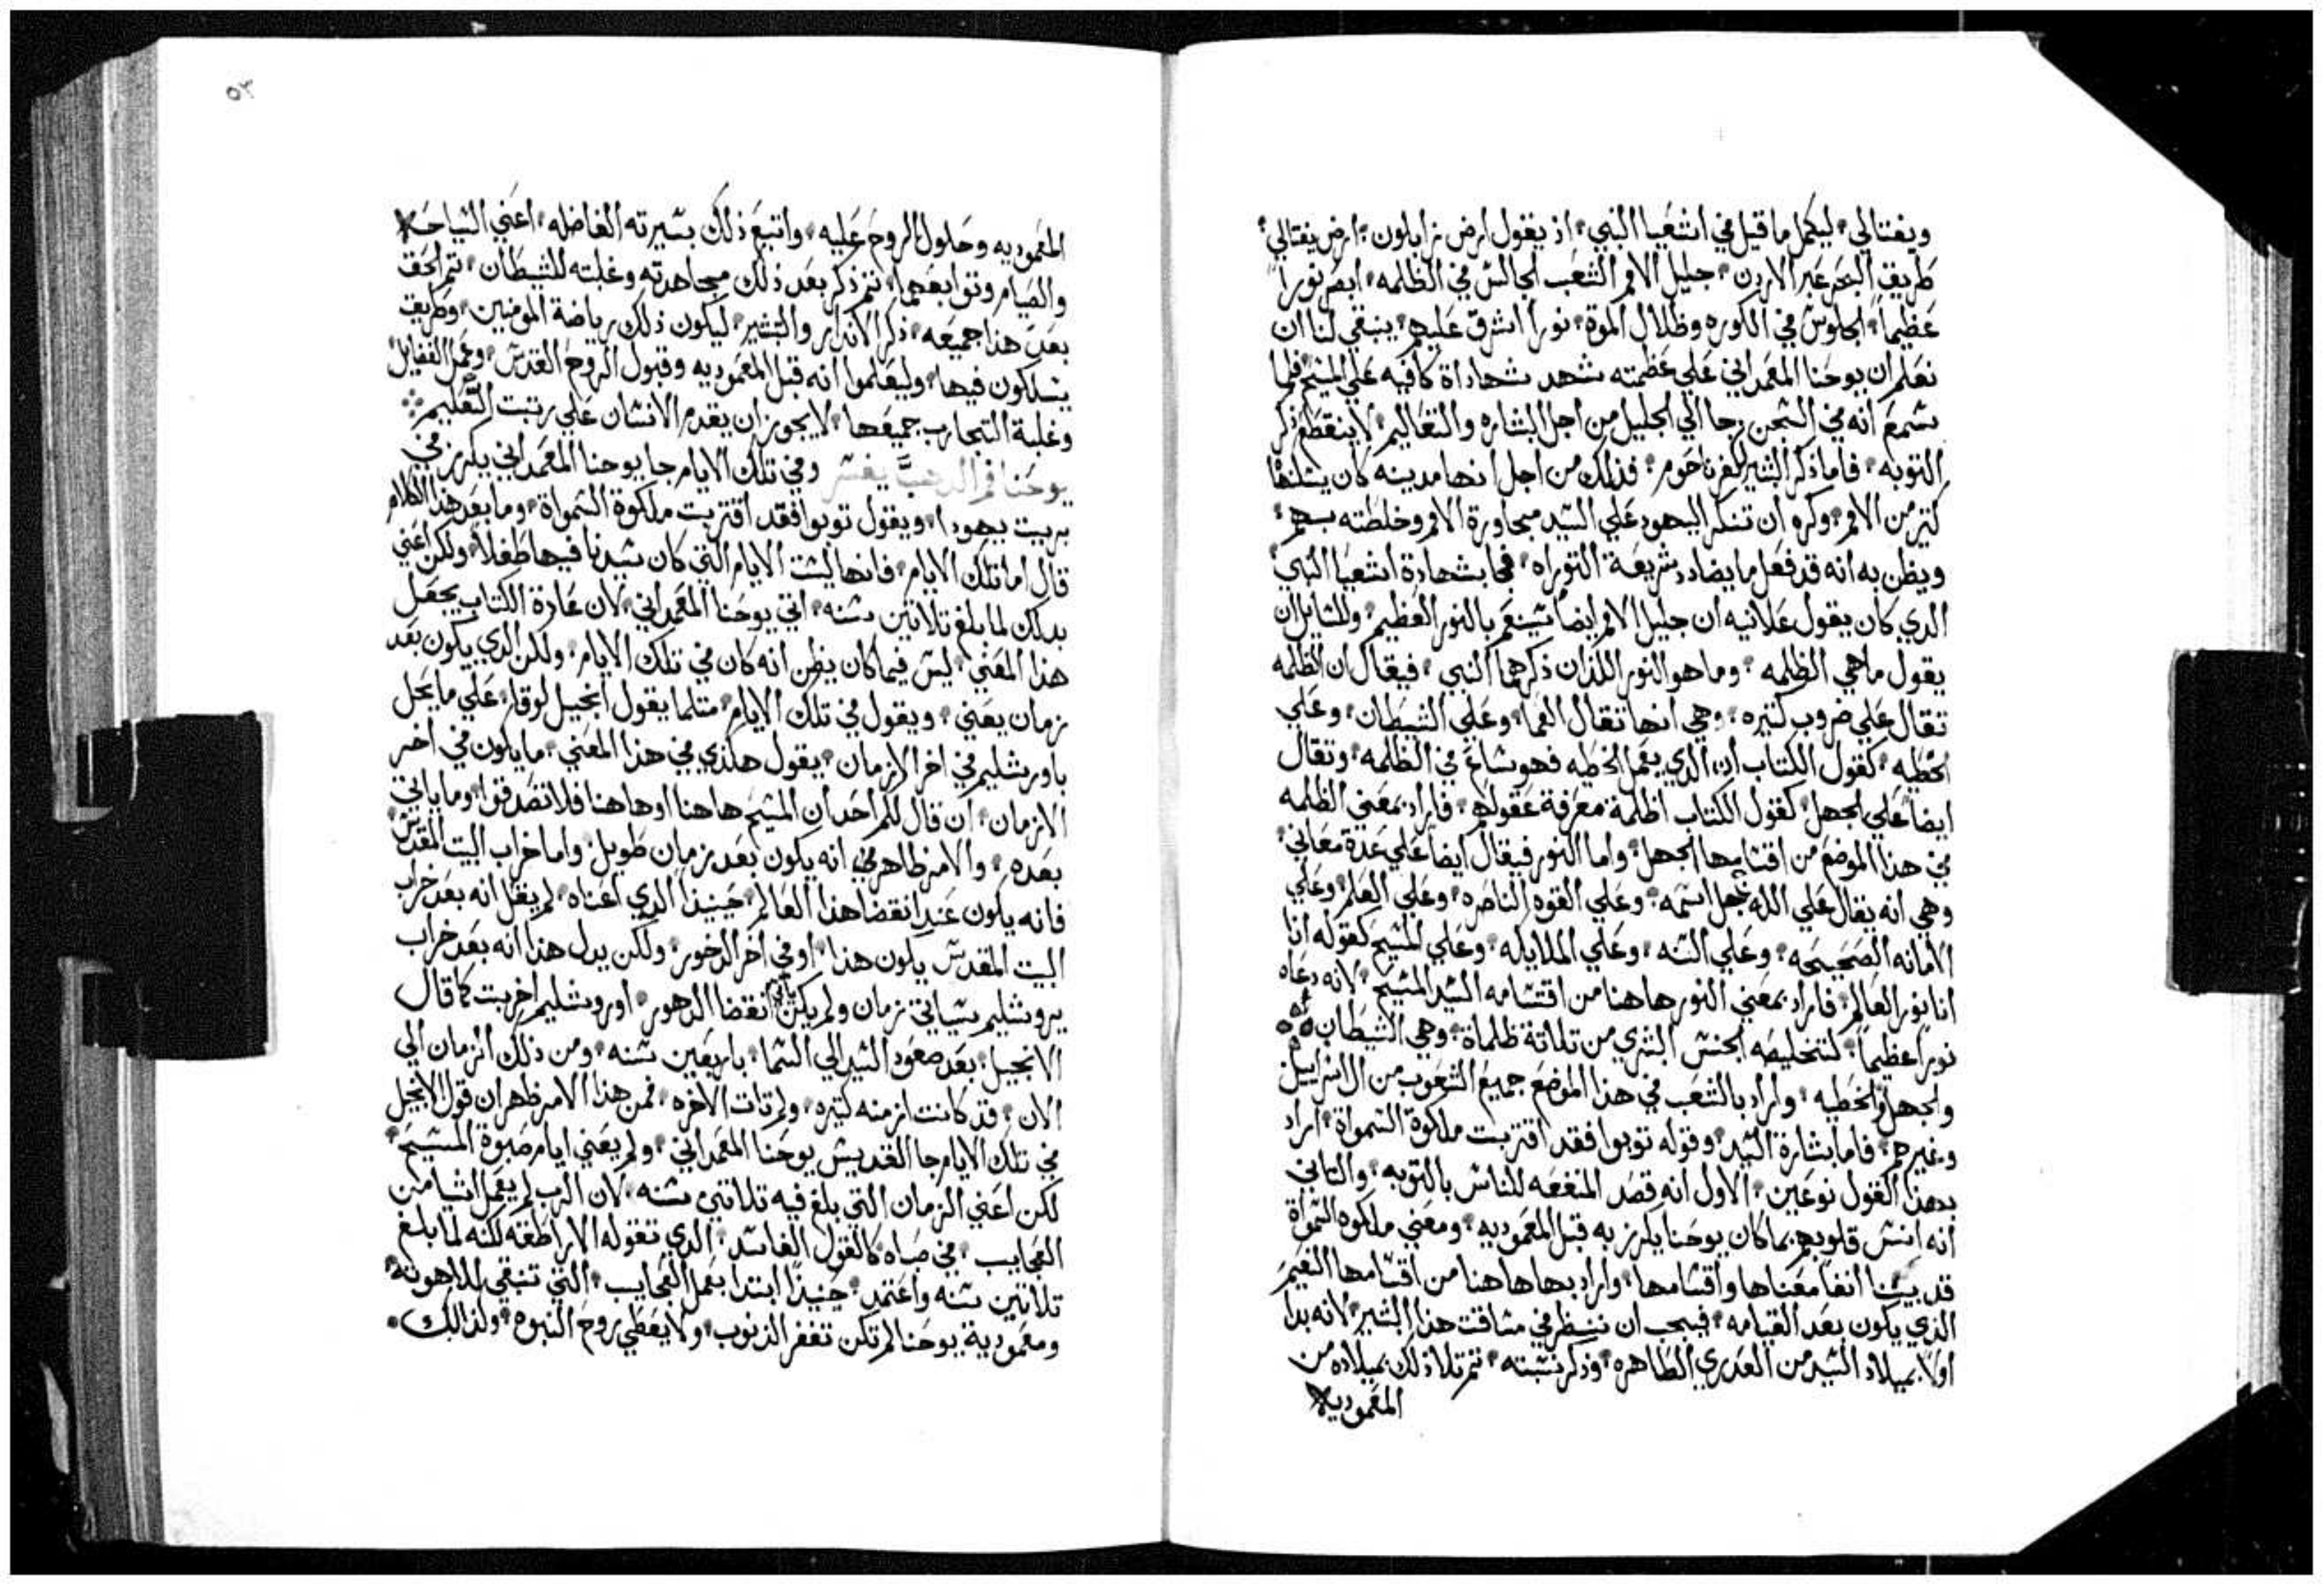 ويفتالي، ليكمل ما قيل في اشعيا النبي، اذ يقول ارض زابلون، ارض يفتالي،
طريق البحر عبر الاردن، جليل الامم الشعب الجالس في الظلمه، ابصر نوراً
عظيماً، الجلوس في الكوره وظلال الموة، نوراً اشرق عليهم، ينبغي لنا ان
نعلم ان يوحنا المعمداني علي عظمته شهد شهاداة كافيه علي المسيح فلما
سمع انه في السجن جا الي الجليل من اجل البشاره والتعاليم، لاينقطع ذكر
التوبه، فاما ذكر البشير لكفرناحوم، فذلك من اجل انها مدينه كان يسكنها
كتير من الامم، وكره ان تنكر اليهود علي السيد مجاورة الامم وخلطته بهم،
ويظن به انه قد فعل ما يضادد شريعة التوراه، فجا بشهادة اشعيا النبي
الدي كان يقول علانيه ان جليل الامم ايضاً تنعم بالنور العظيم، وللسايل ان
يقول ماهي الظلمه، وما هو النور اللذان ذكرهما النبي، فيقال ان الظلمه
تقال علي ضروب كتيره، وهي انها تقال العما، وعلي الشيطان، وعلي
الخطيه، كقول الكتاب ان الدي يعمل الخطيه فهو سالك في الظلمه، وتقال
ايضاً علي الجهل، كقول الكتاب اظلمة معرفة عقولهم، فاراد بمعني الظلمه
في هذا الموضع من اقسامها الجهل، واما النور فيقال ايضاً علي عدة معاني،
وهي انه يقال علي الله جل اسمه، وعلي القوه الناصره، وعلي العلم وعلي
الامانه الصحيحه، وعلي السنه، وعلي الملايكه، وعلي المسيح كقوله انا
انا نور العالم، فاراد بمعني النور هاهنا من اقسامه السيد المسيح، لانه دعاه
نوراً عظيماً، لتخليصه الجنس البشري من تلاتة ظلماة، وهي الشيطان
والجهل والخطيه، واراد بالشعب في هذا الموضع جميع الشعوب من ال اسراييل
وغيرهم، فاما بشارة السيد، وقوله توبوا فقد اقتربت ملكوة السمواة، اراد
بهذا القول نوعين، الاول انه قصد المنفعه للناس بالتوبه، والتاني
انه انس قلوبهم بما كان يوحنا يكرز به قبل المعموديه، ومعني ملكوة السمواة
قد بيننا انفاً معناها واقسامها، واراد بها هاهنا من اقسامها النعيم
الذي يكون بعد القيامه، فيجب ان ننظر في مساقت هذا البشير، لانه بدا
اولاً بميلاد السيد من العدري الطاهره، وذكر نسبته، تم تلا ذلك بميلاده من
المعموديه
٥٣
المعموديه وحلول الروح عليه، واتبع ذلك بسيرته الفاضله، اعني السياحه
والصيام وتوابعهما، تم ذكر بعد ذلك مجاهدته وغلبته للشيطان، تم الحق
بعد هذا جميعه، ذكر الاندار والتبشير، ليكون ذلك رياضة المومنين، وطريق
يسلكون فيها، وليعلموا انه قبل المعموديه وقبول الروح القدس، وعمل الفضايل
وغلبة التجارب جميعها، لايجوز ان يقدم الانسان علي رتبت التعليم
يوحنا فم الدهب يفسر وفي تلك الايام جا يوحنا المعمداني يكرز في
بريت يهودا، ويقول توبوا فقد اقتربت ملكوة السمواة، وما بعد هذا الكلام
قال اما تلك الايام، فانها ليست الايام التي كان سيدنا فيها طفلاً، ولكن اعني
بدلك لما بلغ تلاتين سنه، اتي يوحنا المعمداني، لان عادة الكتاب يجعل
هذا المعني، ليس فيما كان يظن انه كان في تلك الايام، ولكن الدي يكون بعد
زمان يعني، ويقول في تلك الايام، متلما يقول انجيل لوقا، علي ما يحل
باورشليم في اخر الازمان، يقول هكذي في هذا المعني، ما يكون في اخر
الازمان، ان قال لكم احد ان المسيح هاهنا او هاهنا فلا تصدقوا، وما ياتي
بعده، والامر ظاهر في انه يكون بعد زمان طويل، واما خراب البيت المقدس
فانه يكون عند انقضا هذا العالم، حينيذاً الدي اعناه، لم يقل انه بعد خراب
البيت المقدس يكون هذا، او في اخر الدهور، ولكن يدل هذا انه بعد خراب
يروشليم سياتي زمان ولم يكن انقضا الدهور، اوروشليم اخربت كما قال
الانجيل، بعد صعود السيد الي السما، باربعين سنه، ومن ذلك الزمان الي
الان، قد كانت ازمنه كتيره، ولم تات الاخره، فمن هذا الامر ظهر ان قول الانجيل
في تلك الايام جا القديس يوحنا المعمداني، ولم يعني ايام صبوة المسيح،
لكن اعني الزمان التي بلغ فيه تلاتين سنه، لان الرب لم يعمل شيا من
العجايب، في صباه كالقول الفاسد، الدي تقوله الاراطقه لكنه لما بلغ
تلاتين سنه واعتمد، حينيذاً ابتدا بعمل العجايب، التي تنبغي للاهوته،
ومعمودية يوحنا لم تكن تغفر الذنوب، ولا يعطي روح النبوه، ولذالك